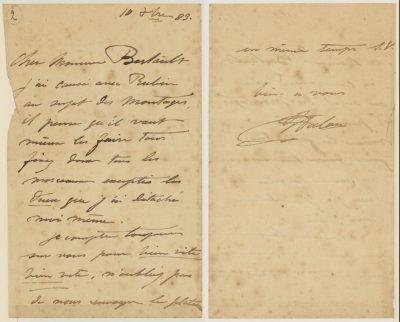 2
10 8bre 89.
Cher Monsieur Bertault
j'ai causé avec Rubin
au sujet des Montages.
il pense qu'il vaut
mieux les faire tous
donc tous les
morceaux exceptés les
deux que j'ai détaché
moi même.
je compte toujours
sur vous pour bien vite
bien vite, n'oubliez pas
de nous envoyer le platre
en même temps S.V.
bien à vous